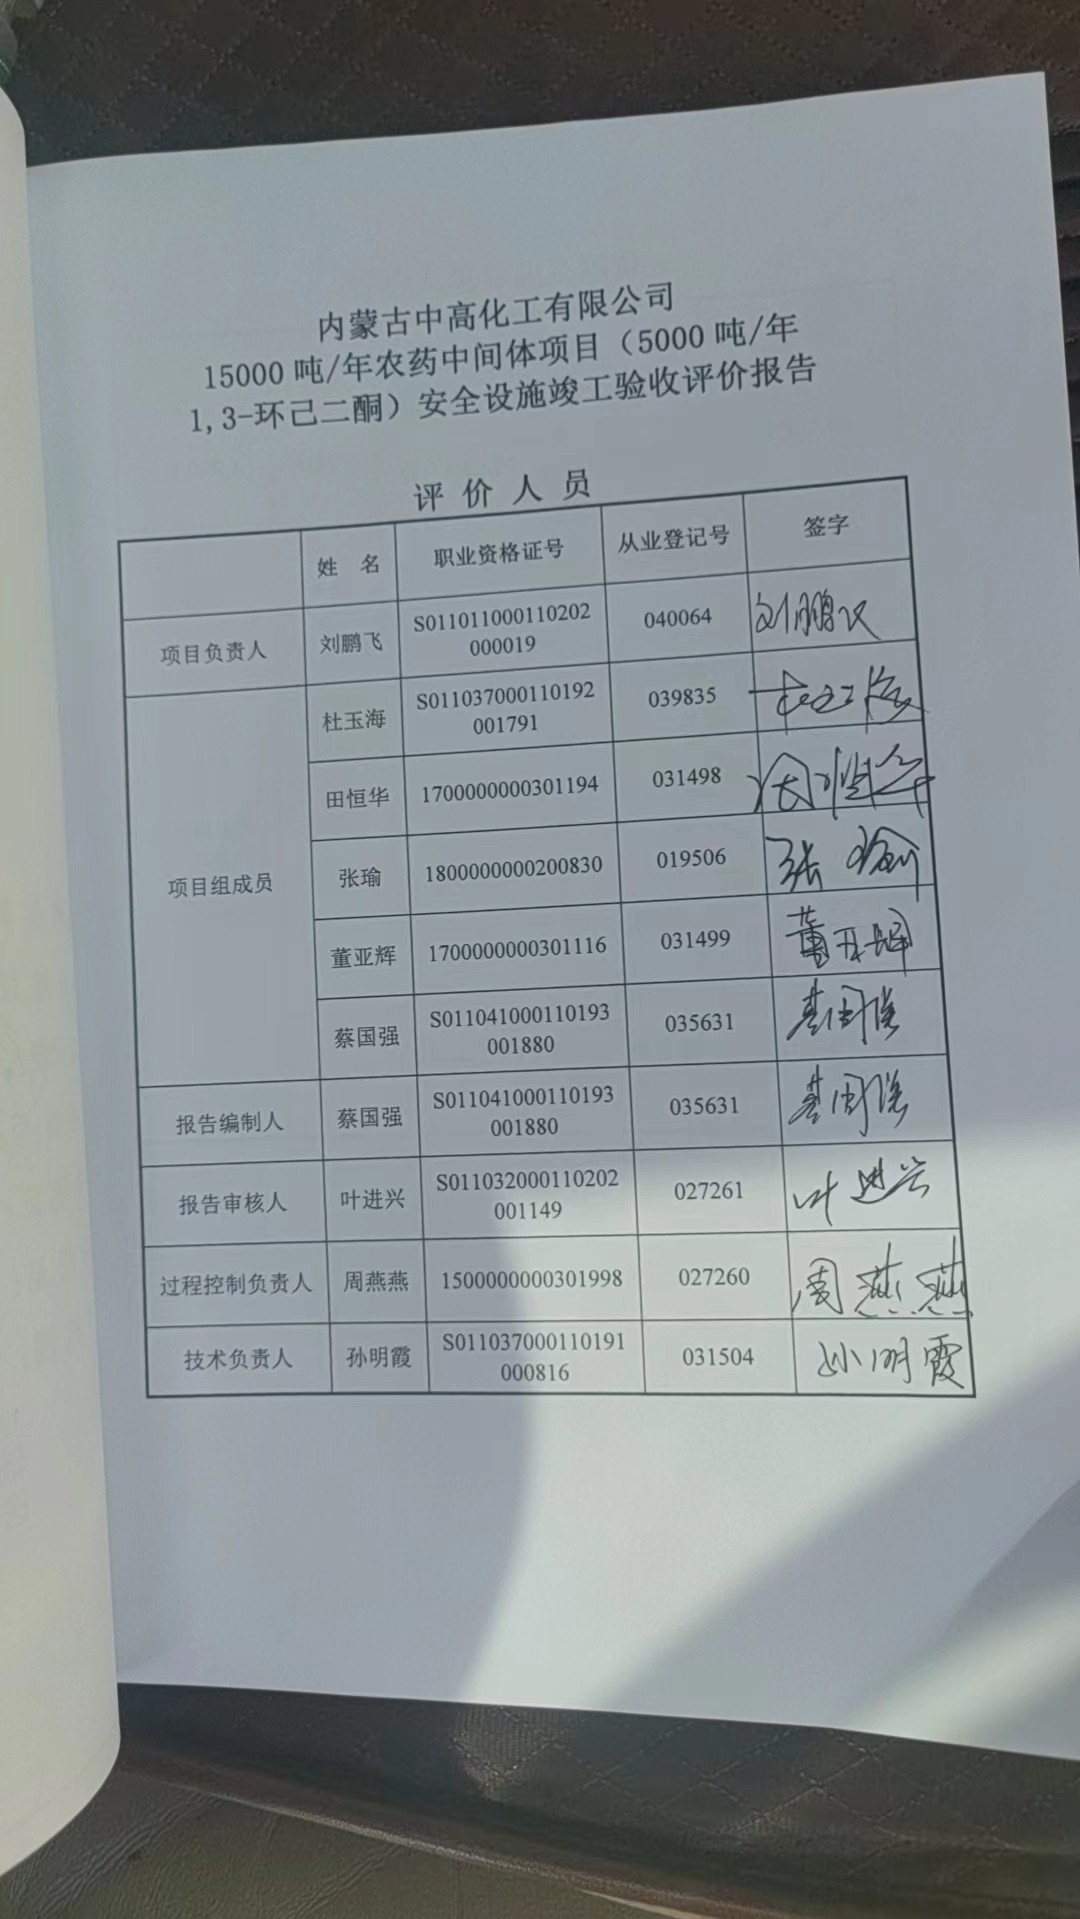 内蒙古中高化工有限公司
15000 吨/年农药中间体项目（5000 吨/年
1,3-环己二酮）安全设施竣工验收评价报告
评 价 人 员
姓 名 职业资格证号 从业登记号 签字
项目负责人 刘鹏飞 S011011000110202000019 040064 刘鹏飞
项目组成员 杜玉海 S011037000110192001791 039835 杜玉海
田恒华 1700000000301194 031498 田恒华
张瑜 1800000000200830 019506 张瑜
董亚辉 1700000000301116 031499 董亚辉
蔡国强 S011041000110193001880 035631 蔡国强
报告编制人 蔡国强 S011041000110193001880 035631 蔡国强
报告审核人 叶进兴 S011032000110202001149 027261 叶进兴
过程控制负责人 周燕燕 1500000000301998 027260 周燕燕
技术负责人 孙明霞 S011037000110191000816 031504 孙明霞